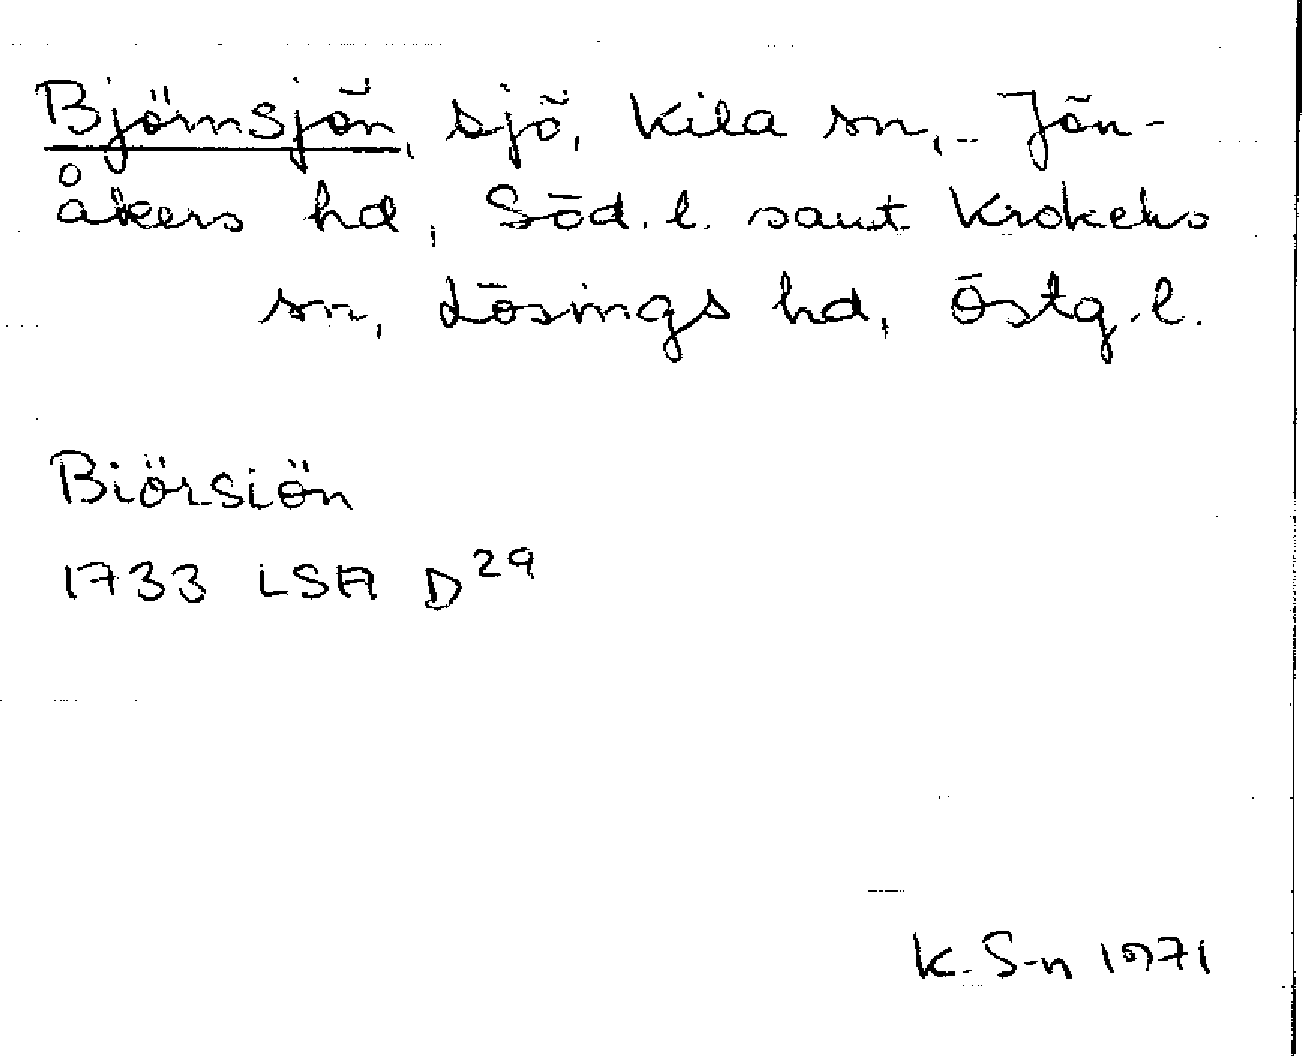 Björnsjön, sjö, Kila sn, Jön-
åkers hd, Söd. l. samt Krokeks
sn, Lösings hd, Östg. l.
Biörsiön
1733 LSA D29
K. S-n 1971